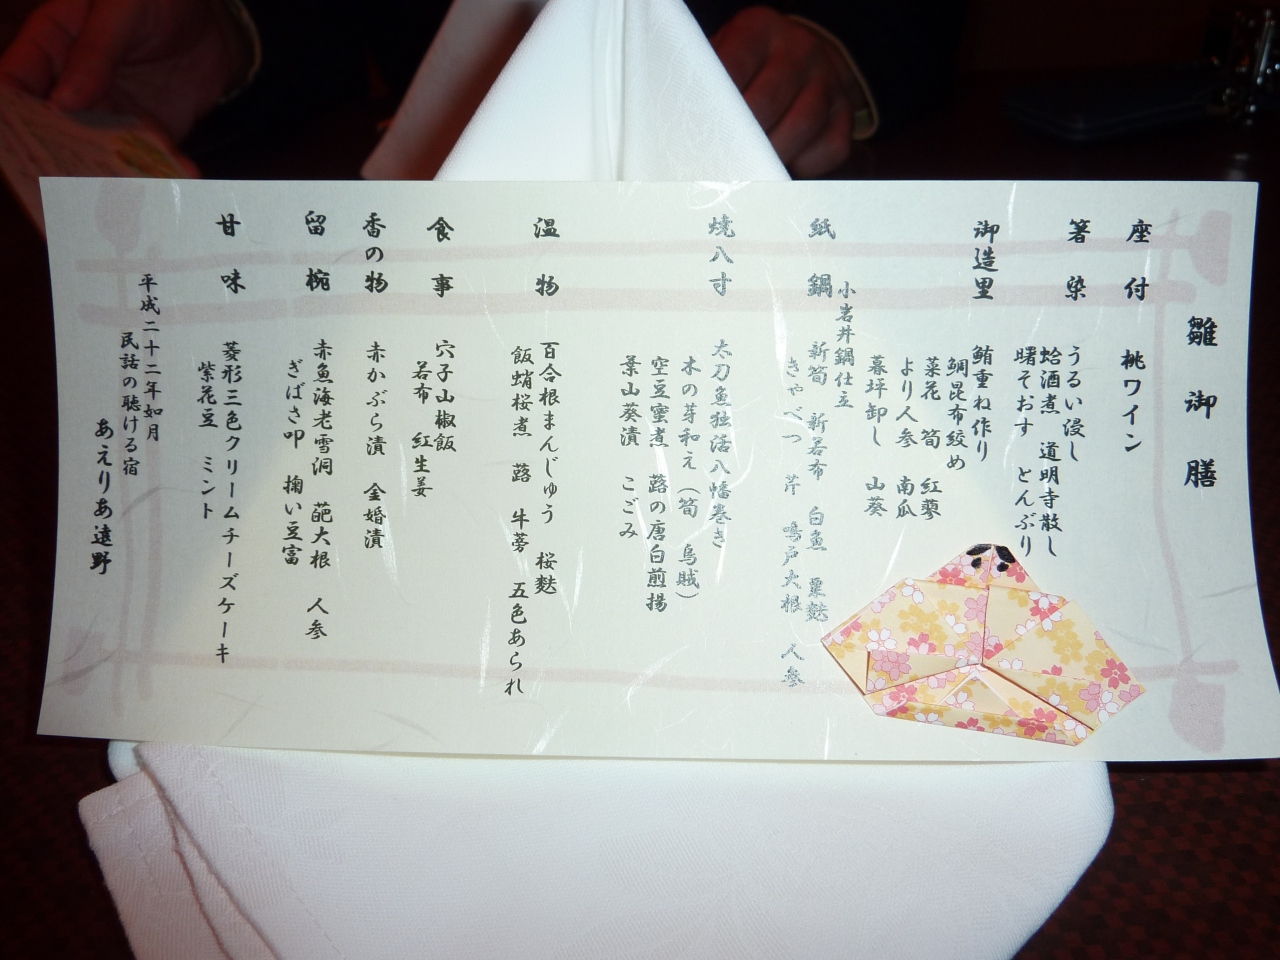 雛御膳
座付 桃ワイン
箸染 うるい浸し
蛤酒煮 道明寺散し
曙そおす とんぶり
御造里 鮪重ね作り
鯛昆布絞め
菜花 筍 紅蓼
より人参 南瓜
暮坪卸し 山葵
小岩井鍋仕立
紙鍋 新筍 新若布 白魚 粟麩
きゃべつ 芹 鳴戸大根 人参
焼八寸 太刀魚独活八幡巻き
木の芽和え(筍 烏賊)
空豆蜜煮 蕗の唐白煎揚
葉山葵漬 こごみ
温物 百合根まんじゅう 桜麩
飯蛸桜煮 蕗 牛蒡 五色あられ
食事 穴子山椒飯
若布 紅生姜
香の物 赤かぶら漬 金婚漬
留椀 赤魚海老雪洞 葩大根 人参
ぎばさ叩 掬い豆富
甘味 菱形三色クリームチーズケーキ
紫花豆 ミント
平成二十二年如月
民話の聴ける宿
あえりあ遠野